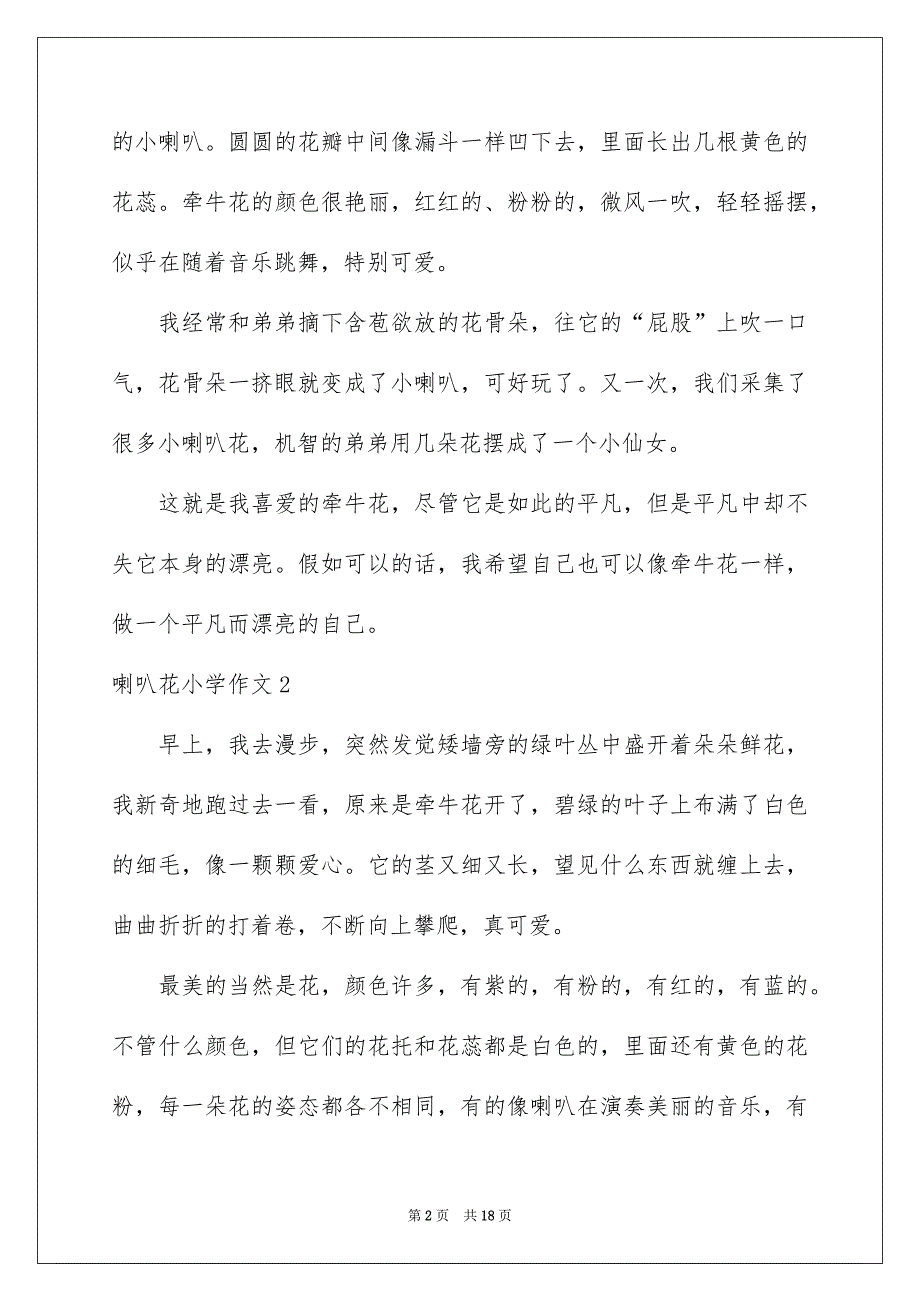 的小喇叭。圆圆的花瓣中间像漏斗一样凹下去，里面长出几根黄色的
花蕊。牵牛花的颜色很艳丽，红红的、粉粉的，微风一吹，轻轻摇摆，
似乎在随着音乐跳舞，特别可爱。
我经常和弟弟摘下含苞欲放的花骨朵，往它的“屁股”上吹一口
气，花骨朵一挤眼就变成了小喇叭，可好玩了。又一次，我们采集了
很多小喇叭花，机智的弟弟用几朵花摆成了一个小仙女。
这就是我喜爱的牵牛花，尽管它是如此的平凡，但是平凡中却不
失它本身的漂亮。假如可以的话，我希望自己也可以像牵牛花一样，
做一个平凡而漂亮的自己。
喇叭花小学作文 2
早上，我去漫步，突然发觉矮墙旁的绿叶丛中盛开着朵朵鲜花，
我新奇地跑过去一看，原来是牵牛花开了，碧绿的叶子上布满了白色
的细毛，像一颗颗爱心。它的茎又细又长，望见什么东西就缠上去，
曲曲折折的打着卷，不断向上攀爬，真可爱。
最美的当然是花，颜色许多，有紫的，有粉的，有红的，有蓝的。
不管什么颜色，但它们的花托和花蕊都是白色的，里面还有黄色的花
粉，每一朵花的姿态都各不相同，有的像喇叭在演奏美丽的音乐，有
第 2 页 共 18 页